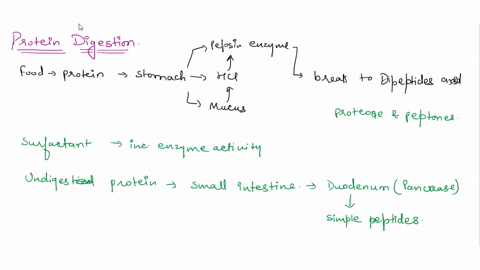 Protein Digestion.
Pepsin enzyme
Food → protein → stomach → HCl → break to Dipeptides and
Mucus
proteose & peptones.
Surfactant → inc enzyme activity
Undigested protein → small intestine. → Duodenum (Pancrease)
simple peptides.